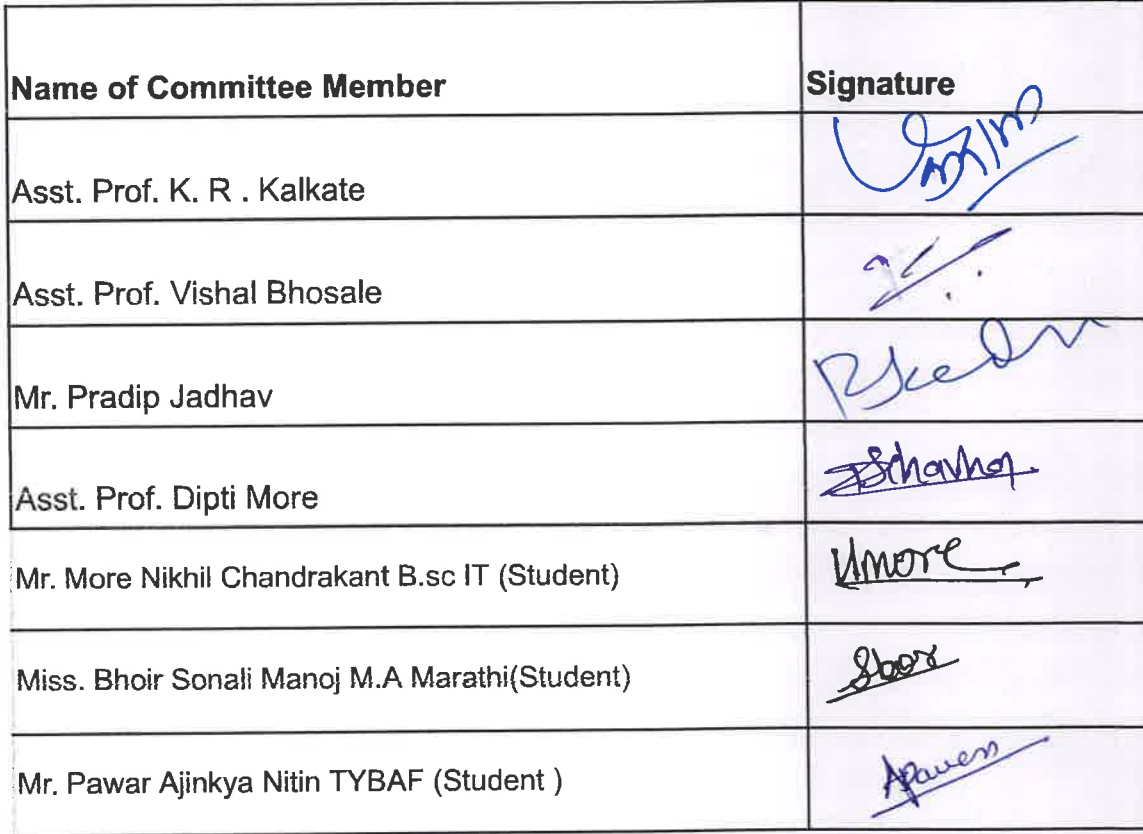 Name of Committee Member Signature
Asst. Prof. K. R . Kalkate
Asst. Prof. Vishal Bhosale
Mr. Pradip Jadhav
Asst. Prof. Dipti More
Mr. More Nikhil Chandrakant B.sc IT (Student) Nmore
Miss. Bhoir Sonali Manoj M.A Marathi(Student)
Mr. Pawar Ajinkya Nitin TYBAF (Student )